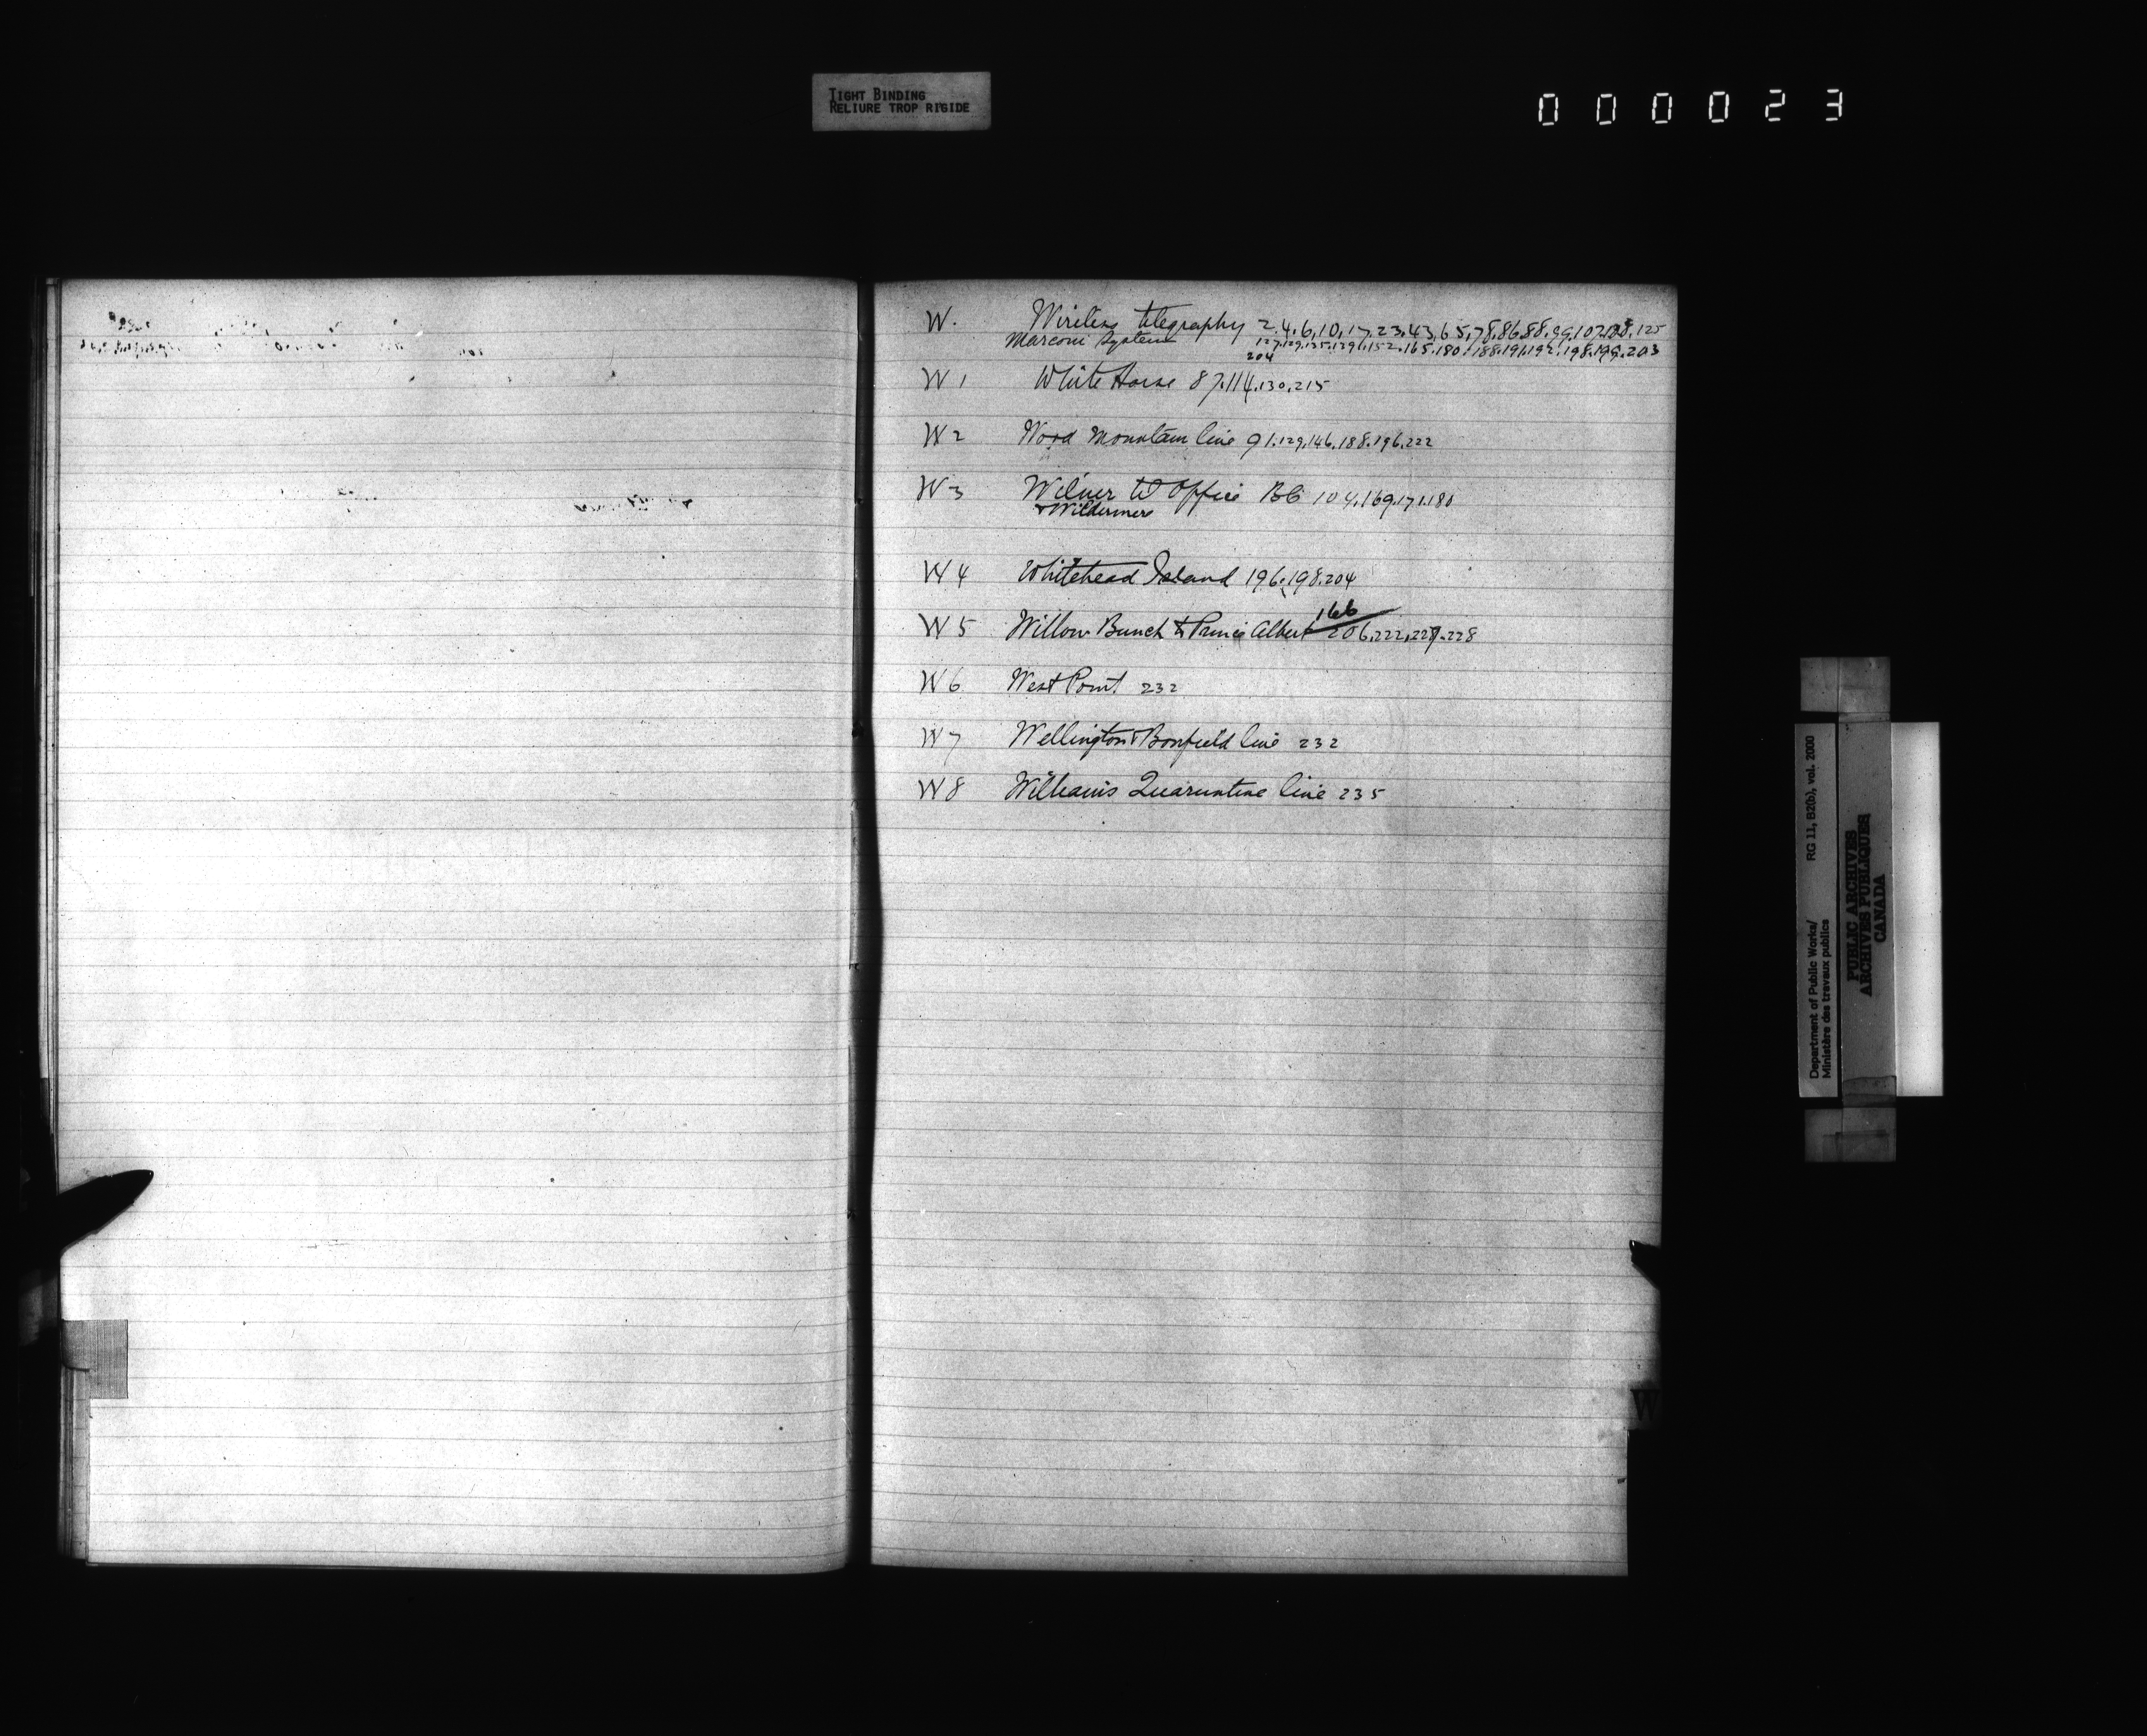 TIGHT BINDING
RELIURE TROP RIGIDE
000023
W. Wireless telegraphy 2.4.6.10.17.23.43.65.78.86.88.99.107. 125
Marconi System 127.129.135.139.152.165.180.188.191.192.198.199.203
204
W 1 White Horse 87.114.130.215
W 2 Wood Mountain line 91.129.146.188.196.222
W 3 Wilmer W Office BC 104.169.171.180
& Wildermere
W 4 Whitehead Island 196.198.204
166
W 5 Willow Bunch to Prince Albert 206.222.227.228
W 6 West Point 232
W 7 Wellington & Bonfield line 232
W 8 Williams Quarantine line 235
W
Department of Public Works/ RG 11, B2(b), vol. 2000
Ministère des travaux publics
PUBLIC ARCHIVES
ARCHIVES PUBLIQUES
CANADA